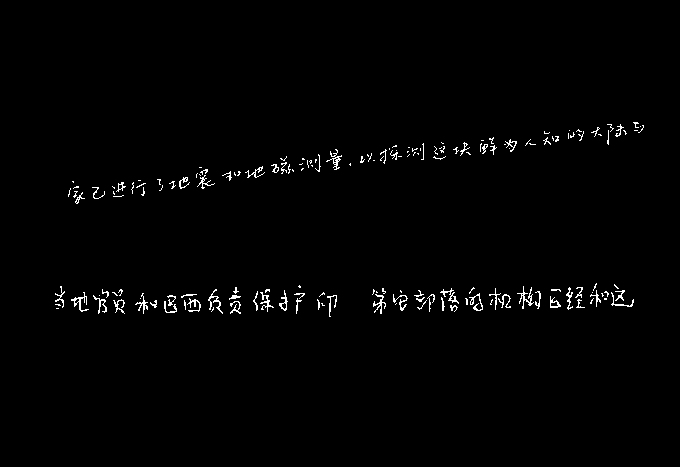 家已进行了地震和地磁测量,以探测这块鲜为人知的大陆与
当地官员和巴西负责保护印第安部落的机构已经和这